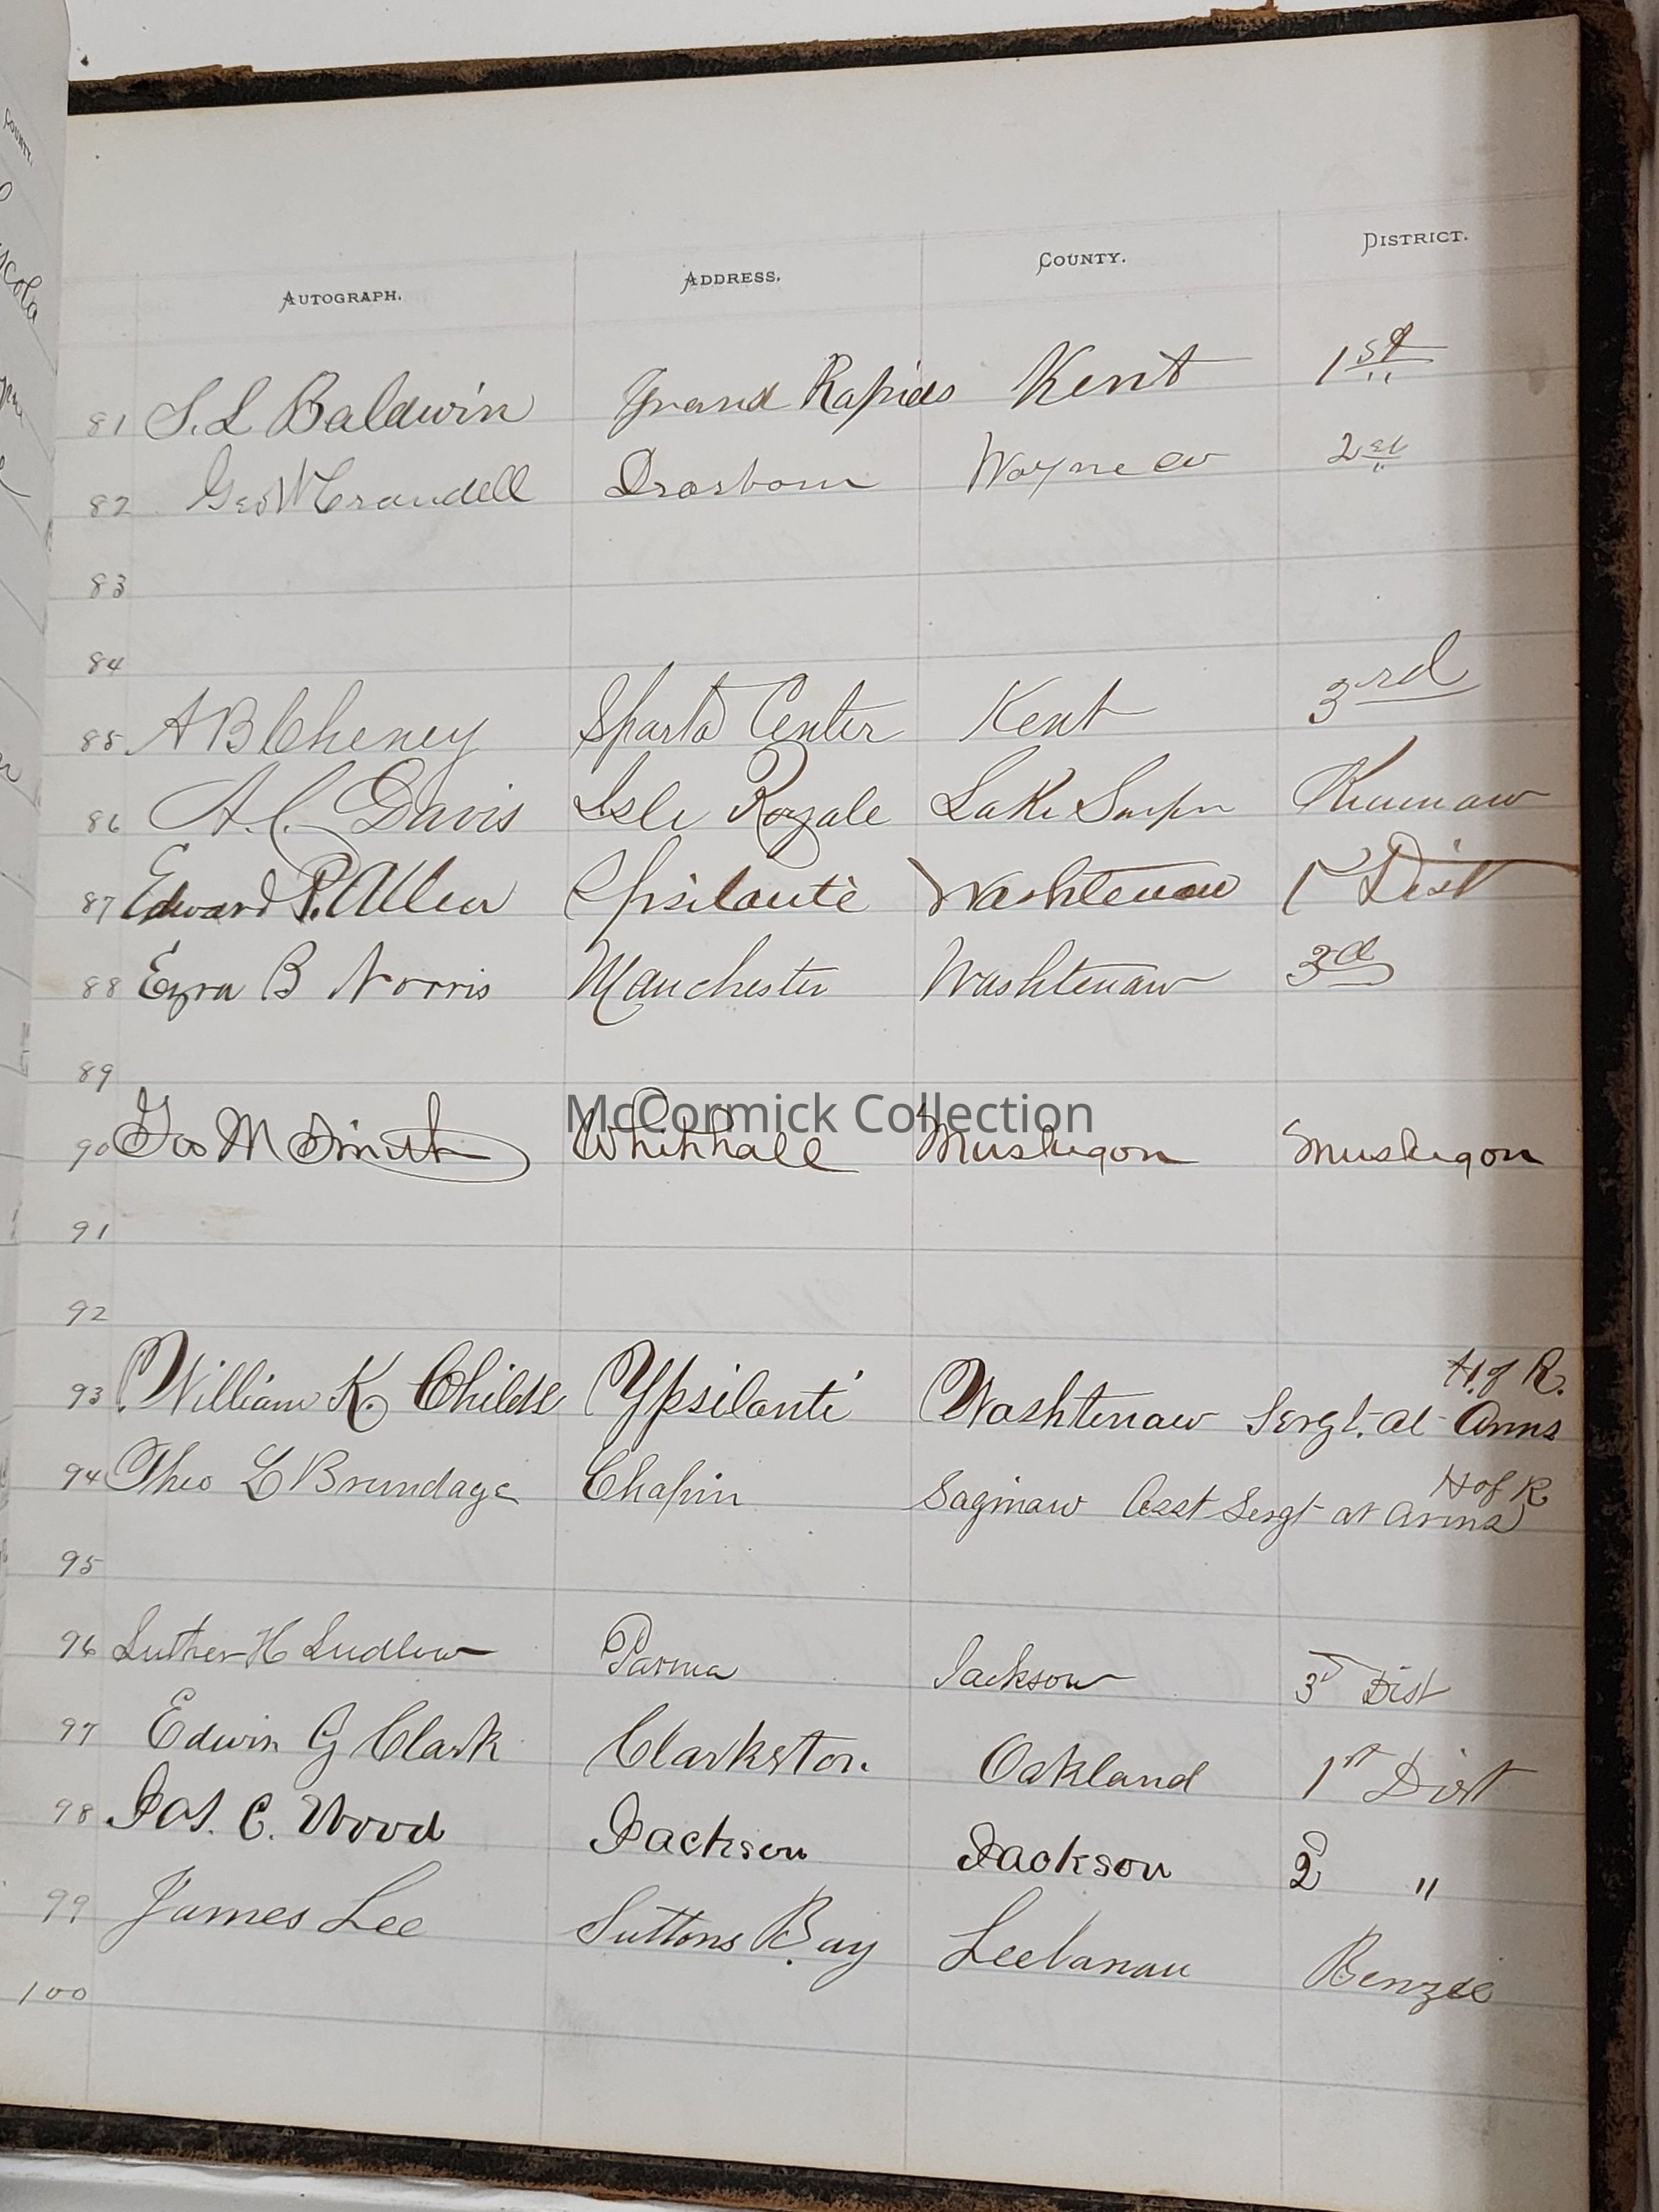 AUTOGRAPH. ADDRESS. COUNTY. DISTRICT.
81 S. L Baldwin Grand Rapids Kent 1st
82 Geo W Crandell Dearborn Wayne Co 2
83
84
85 A B Cheney Sparta Center Kent 3rd
86 A. C. Davis Isle Royale Lake Keweenaw
87 Edward P. Allen Ypsilanti Washtenaw 1 Dist
88 Ezra B Norris Manchester Washtenaw 3d
89
McCormick Collection
90 Geo M Smith Whitehall Muskegon Muskegon
91
92
93 William K. Childs Ypsilanti Washtenaw Sergt. at Arms H. of R.
94 Theo L Brundage Chapin Saginaw Asst Sergt at Arms H of R
95
96 Luther H Ludlow Parma Jackson 3d Dist
97 Edwin G Clark Clarkston Oakland 1st Dist
98 Jas. C. Wood Jackson Jackson 2 "
99 James Lee Suttons Bay Leelanau Benzie
100
COUNTY.